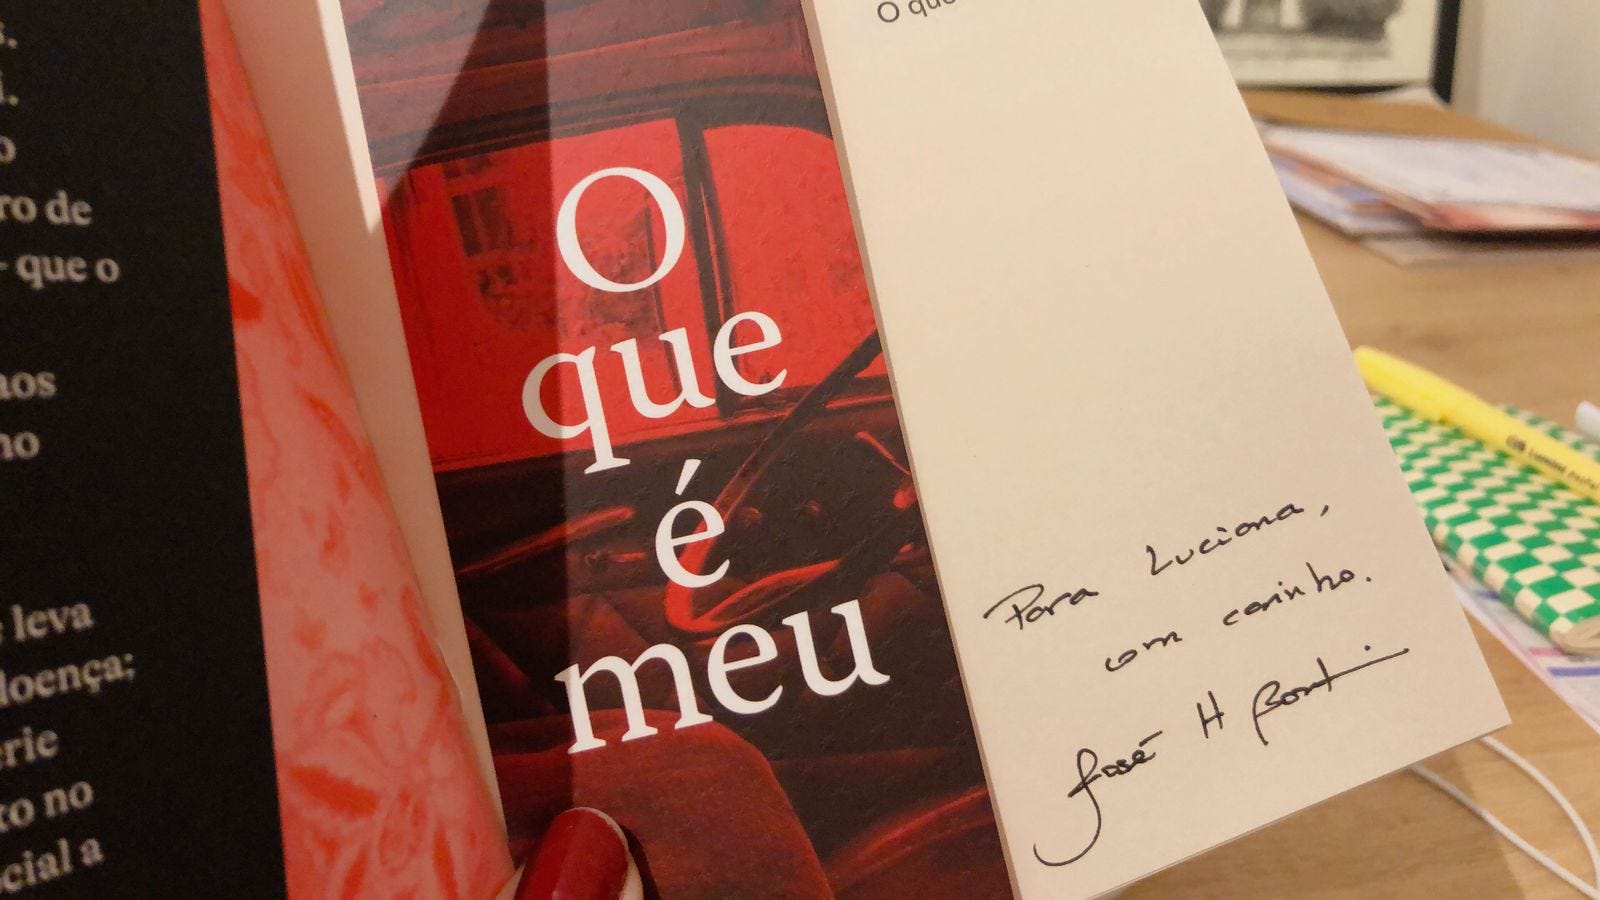 ro de
- que o
aos
leva
doença;
to no
cial a
O
que
é
meu
O que
Para Luciana,
com carinho.
José H Bort